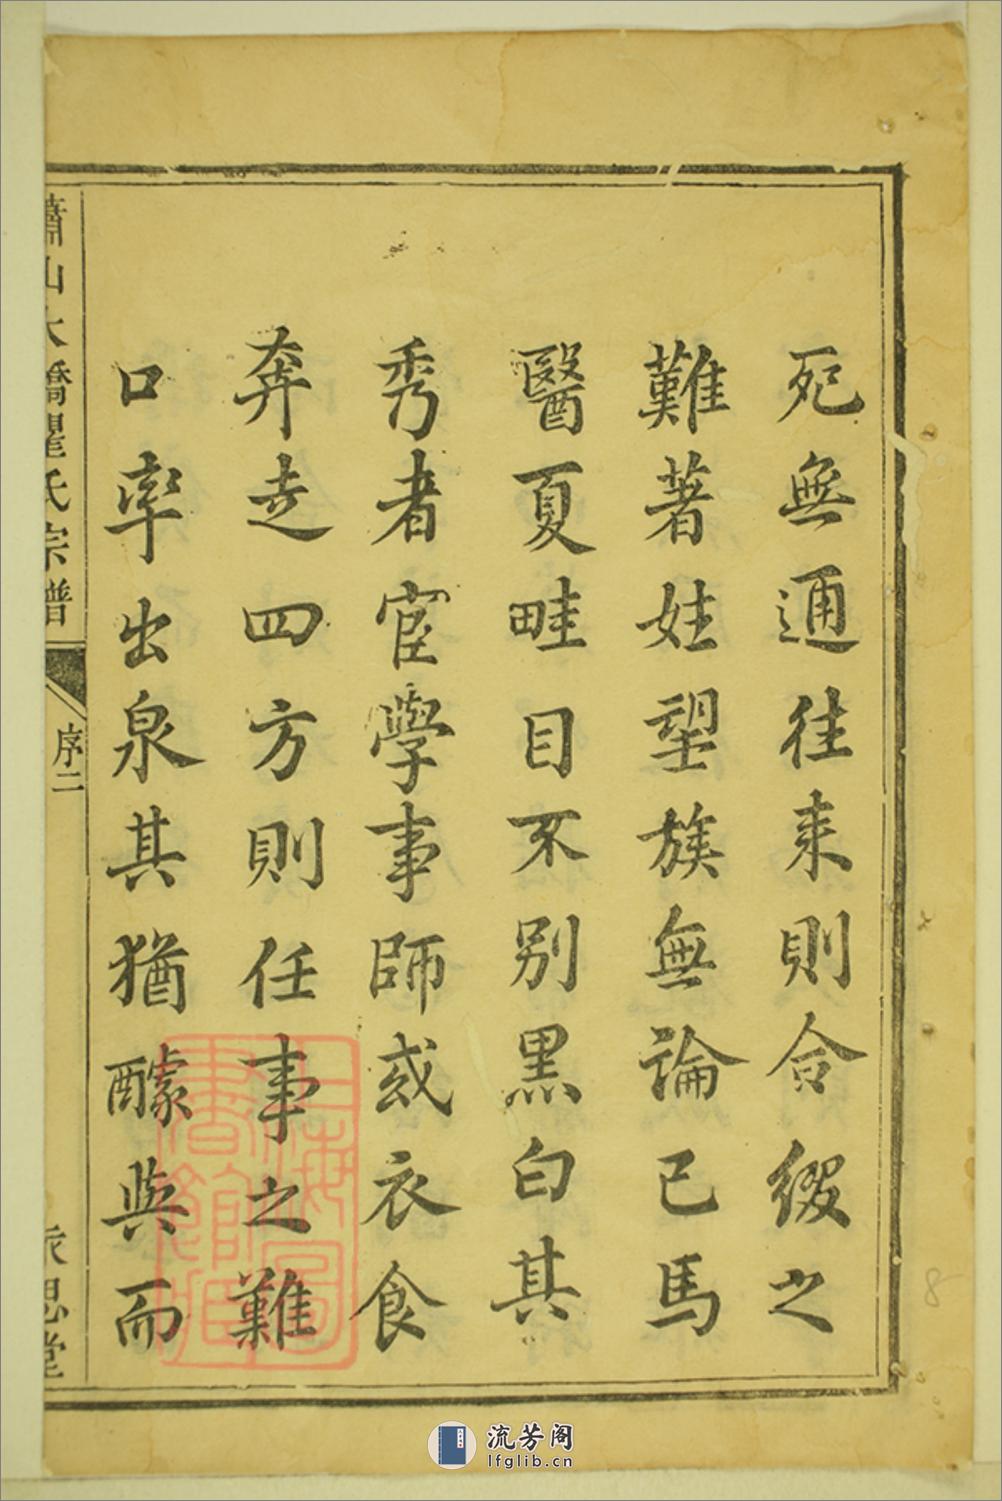 死無通往来則合綴之
難著姓望族無論已馬
醫夏畦目不別黒白其
秀者宦學事師或衣食
奔走四方則任事之難
口率出泉其猶醵與而
蕭山大橋瞿氏宗譜
序二
永思堂
上海圖書館藏
流芳阁
lfglib.cn
8